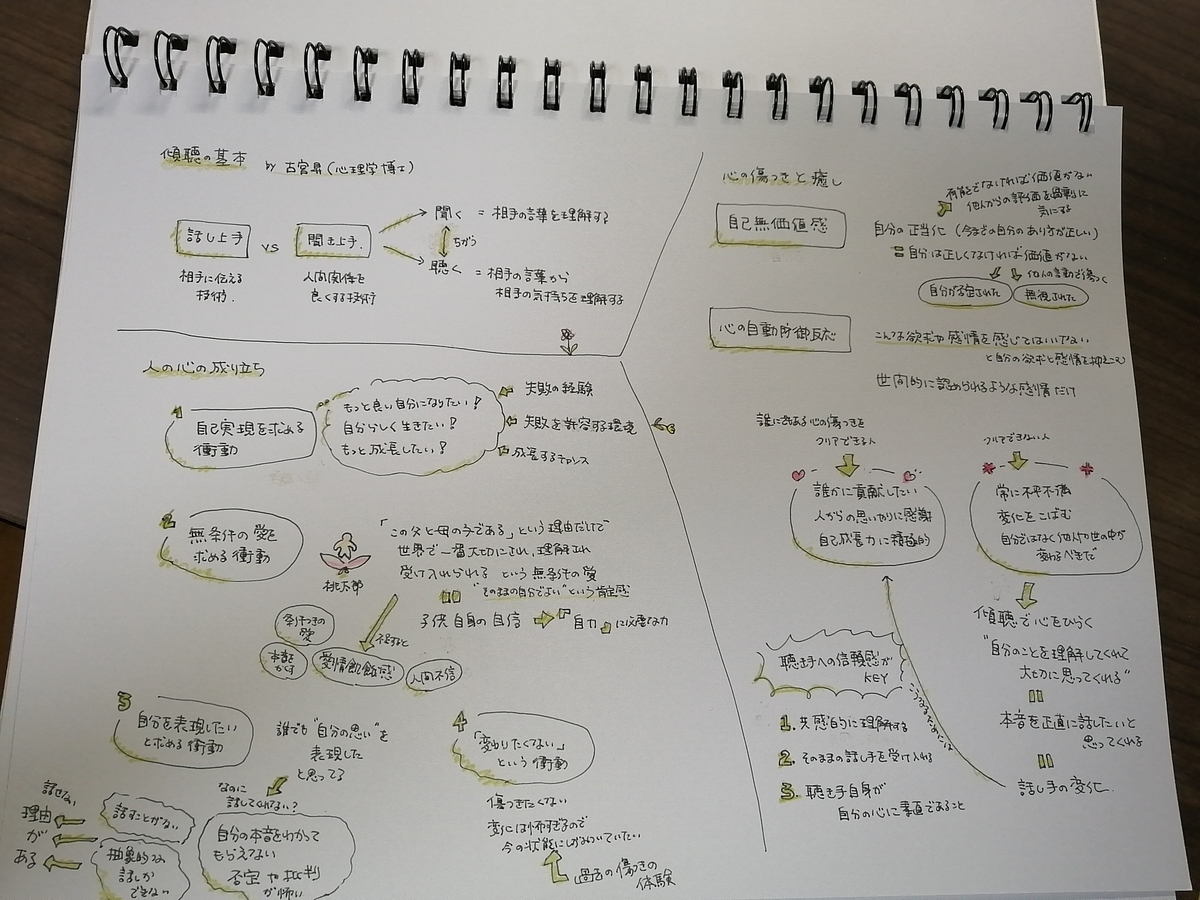 傾聴の基本 by 古宮昇(心理学博士)
話し上手 vs 聞き上手.
相手に伝える
技術.
人間関係を
良くする技術
聞く = 相手の言葉を理解する
ちがう
聴く = 相手の言葉から
相手の気持ちを理解する
人の心の成り立ち
1 自己実現を求める
衝動
もっと良い自分になりたい!
自分らしく生きたい!
もっと成長したい!
失敗の経験
失敗を許容する環境
成長するチャンス
2 無条件の愛を
求める衝動
桃太郎
「この父と母の子である」という理由だけで
世界で一番大切にされ、理解され
受け入れられる という無条件の愛
"そのままの自分でよい"という肯定感
子供自身の自信 → 『自力』に必要な力
不足すると
条件つきの
愛
本音を
かくす
愛情飢餓感
人間不信
3 自分を表現したい
と求める衝動
誰でも"自分の思い"を
表現した
と思ってる
なのに
話してくれない?
自分の本音をわかって
もらえない
否定や批判
が怖い
話すことがない
抽象的な
話しか
できない
話せない
理由
が
ある
4 「変わりたくない」
という衝動
傷つきたくない
変化は怖すぎるので
今の状態にしがみついていたい
過去の傷つきの
体験
心の傷つきと癒し
自己無価値感
有能でなければ価値がない
他人からの評価を過剰に
気にする
自分の正当化(今までの自分のあり方が正しい)
=自分は正しくなければ価値がない
他人の言動で傷つく
自分が否定された
無視された
心の自動防御反応
こんな欲求や感情を感じてはいけない
と自分の欲求と感情を抑えこむ
世間的に認められるような感情だけ
誰にでもある心の傷つきを
クリアできる人
誰かに貢献したい
人からの思いやりに感謝
自己成長力に積極的
クリアできない人
常に不平不満
変化をこばむ
自分ではなく他人や世の中が
変わるべきだ
傾聴で心をひらく
"自分のことを理解してくれて
大切に思ってくれる"
本音を正直に話したいと
思ってくれる
話し手の変化.
こうなるためには
聴き手への信頼感が
KEY
1. 共感的に理解する
2. そのままの話し手を受け入れる
3. 聴き手自身が
自分の心に素直であること